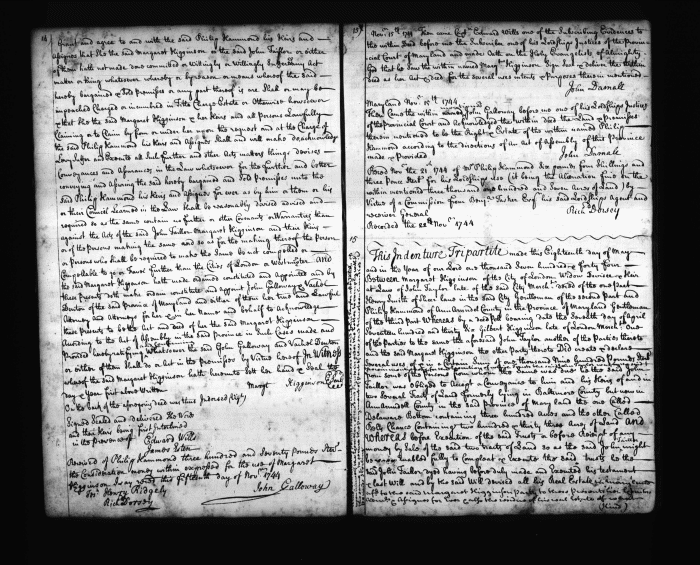 14
Grant and agree to and with the said Philip Hammond his Heirs and
assigns that She the said Margaret Higginson or the said John Taylor or either
of them hath not made done committed or willingly or willingly Suffered any Act
matter or thing whatsoever whereby or by reason or means whereof the said
hereby bargained Sold premises or any part thereof is are Shall or may be
impeached Charged or incumbred in Title Charge Estate or Otherwise howsoever
& that She the said Margaret Higginson & her Heirs and all persons Lawfully
Claiming or to Claim by from or under her upon the request and at the Charge of
the said Philip Hammond his Heirs and Assigns Shall and will make do acknowledge
Levy Suffer and Execute all Such further and other Acts matters things devises
Conveyances and Assurances in the Law whatsoever for the further and better
conveying and assuring the said hereby bargained and Sold premises unto the
said Philip Hammond his Heirs and Assigns for ever as by him or them or his
or their Council Learned in the Law shall be reasonably devised advised and
required so as the same contain no further or other Covenants or Warranties than
against the Acts of the said John Taylor Margaret Higginson and their Heirs
or of the persons making the same and so as for the making thereof the person
or persons who shall be required to make the Same be not compelled or
Compellable to go or Travel further than the Cities of London or Westminster and
the said Margaret Higginson hath made ordained constituted and appointed and by
these presents doth make ordain constitute and appoint John Galloway & Vachel
Denton of the said Province of Maryland and either of them her true and Lawful
Attorney and Attorneys for her & in her Name and behalf to acknowledge
these presents to be the Act and deed of her the said Margaret Higginson
According to the Act of Assembly in the said province in Such Cases made and
Provided hereby ratifying whatsoever the said John Galloway and Vachel Denton
or either of them Shall do or act in the premises by Virtue hereof In Witness
whereof the said Margaret Higginson hath hereunto Sett her hand & Seal the
day & Year first above Written
Margt Higginson
On the back of the aforegoing deed was thus Indorsed Vizt
Signed Sealed and delivered the Word
and their Heirs being first interlined
in the presence of
Edward Wills
James
Received of Philip Hammond three hundred and Seventy pounds Sterl.
the Consideration money within expressed for the use of Margaret
Higginson I say recd this fifteenth day of Novr 1744
Test Henry Ridgely
John Galloway
Rich Dorsey
Novr 15th 1744 Then came Capt Edward Wills one of the Subscribing Evidences to
the within deed before me the Subscriber one of his Lordships Justices of the Provin-
cial Court of Maryland and made Oath on the Holy Evangelists of Almighty
God that he Saw the within named Margt Higginson Sign Seal & deliver the within
deed as her Act & deed for the several uses intents & purposes therein mentioned
John Darnall
Maryland Novr 15th 1744
Then Came the within named John Galloway before me one of his Lordships Justices
of the Provincial Court and acknowledged the within deed the Land & premises
therein mentioned to be the Right & Estate of the within named Philip
Hammond according to the directions of an Act of Assembly of this Province
made & Provided
John Darnall
Recd Novr the 21 1744 of Mr Philip Hammond Six pounds four Shillings and
three pence Sterl for his Lordships use it being the Alienation fine on the
within mentioned three thousand one hundred and Seven Acres of Land by
Virtue of a Commission from Benja Tasker Esqr his said Lordships Agent and
receiver General
Rich Dorsey
Recorded the 22d Novr 1744
15
This Indenture Tripartite made this Eighteenth day of May
and in the Year of our Lord one thousand Seven hundred & forty four
Between Margaret Higginson of the City of London Widow Devisee & Heir
at Law of John Taylor late of the said City Merchant decd of the one part
Henry Smith of Silver lane in the said City Gentleman of the second part and
Philip Hammond of Ann Arundel County in the Province of Maryland Gentleman
of the third part Whereas by a deed poll bearing date the Seventh day of April
Seventeen hundred and thirty Six Gilbert Higginson late of London Merchant One
of the Parties to the same the aforesaid John Taylor another of the parties thereto
and the said Margaret Higginson the other Party thereto Did create & declare
Taylor was Obliged to Accept a Conveyance to him and his Heirs of and in
two several Tracts of Land formerly lying in Baltimore County but now in
Ann Arundel County in the said province of Maryland the one Called
Delaware Bottom containing three hundred acres and the other Called
Polly Chance Containing two hundred & thirty three Acres of Land and
whereas before Execution of the said Trust & before Receipt of
money by Sale of the said two tracts of Land so as the said John might
be enabled fully to Compleat & Execute the said trust he the
said John Taylor dyed having before duly made and Executed his testament
& last Will and by the said Will devised all his Real Estate
(Kind)